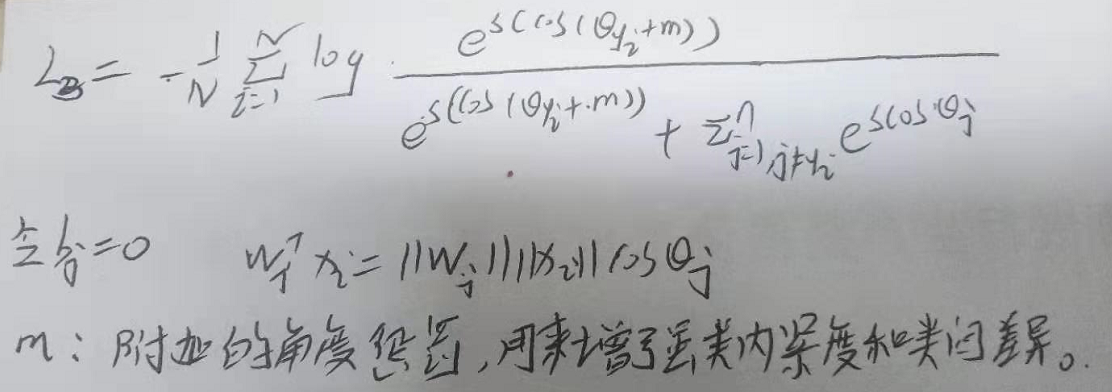 L₃ = -1/N Σ_{i=1}^{N} log e^{s(cos(θ_{y_i}+m))} / (e^{s(cos(θ_{y_i}+m))} + Σ_{j=1,j≠y_i}^{n} e^{s cosθ_j})
全b_j=0 W_j^T x_i = ||W_j|| ||x_i|| cosθ_j
m：附加的角度惩罚，用来增强类内紧度和类间差异。